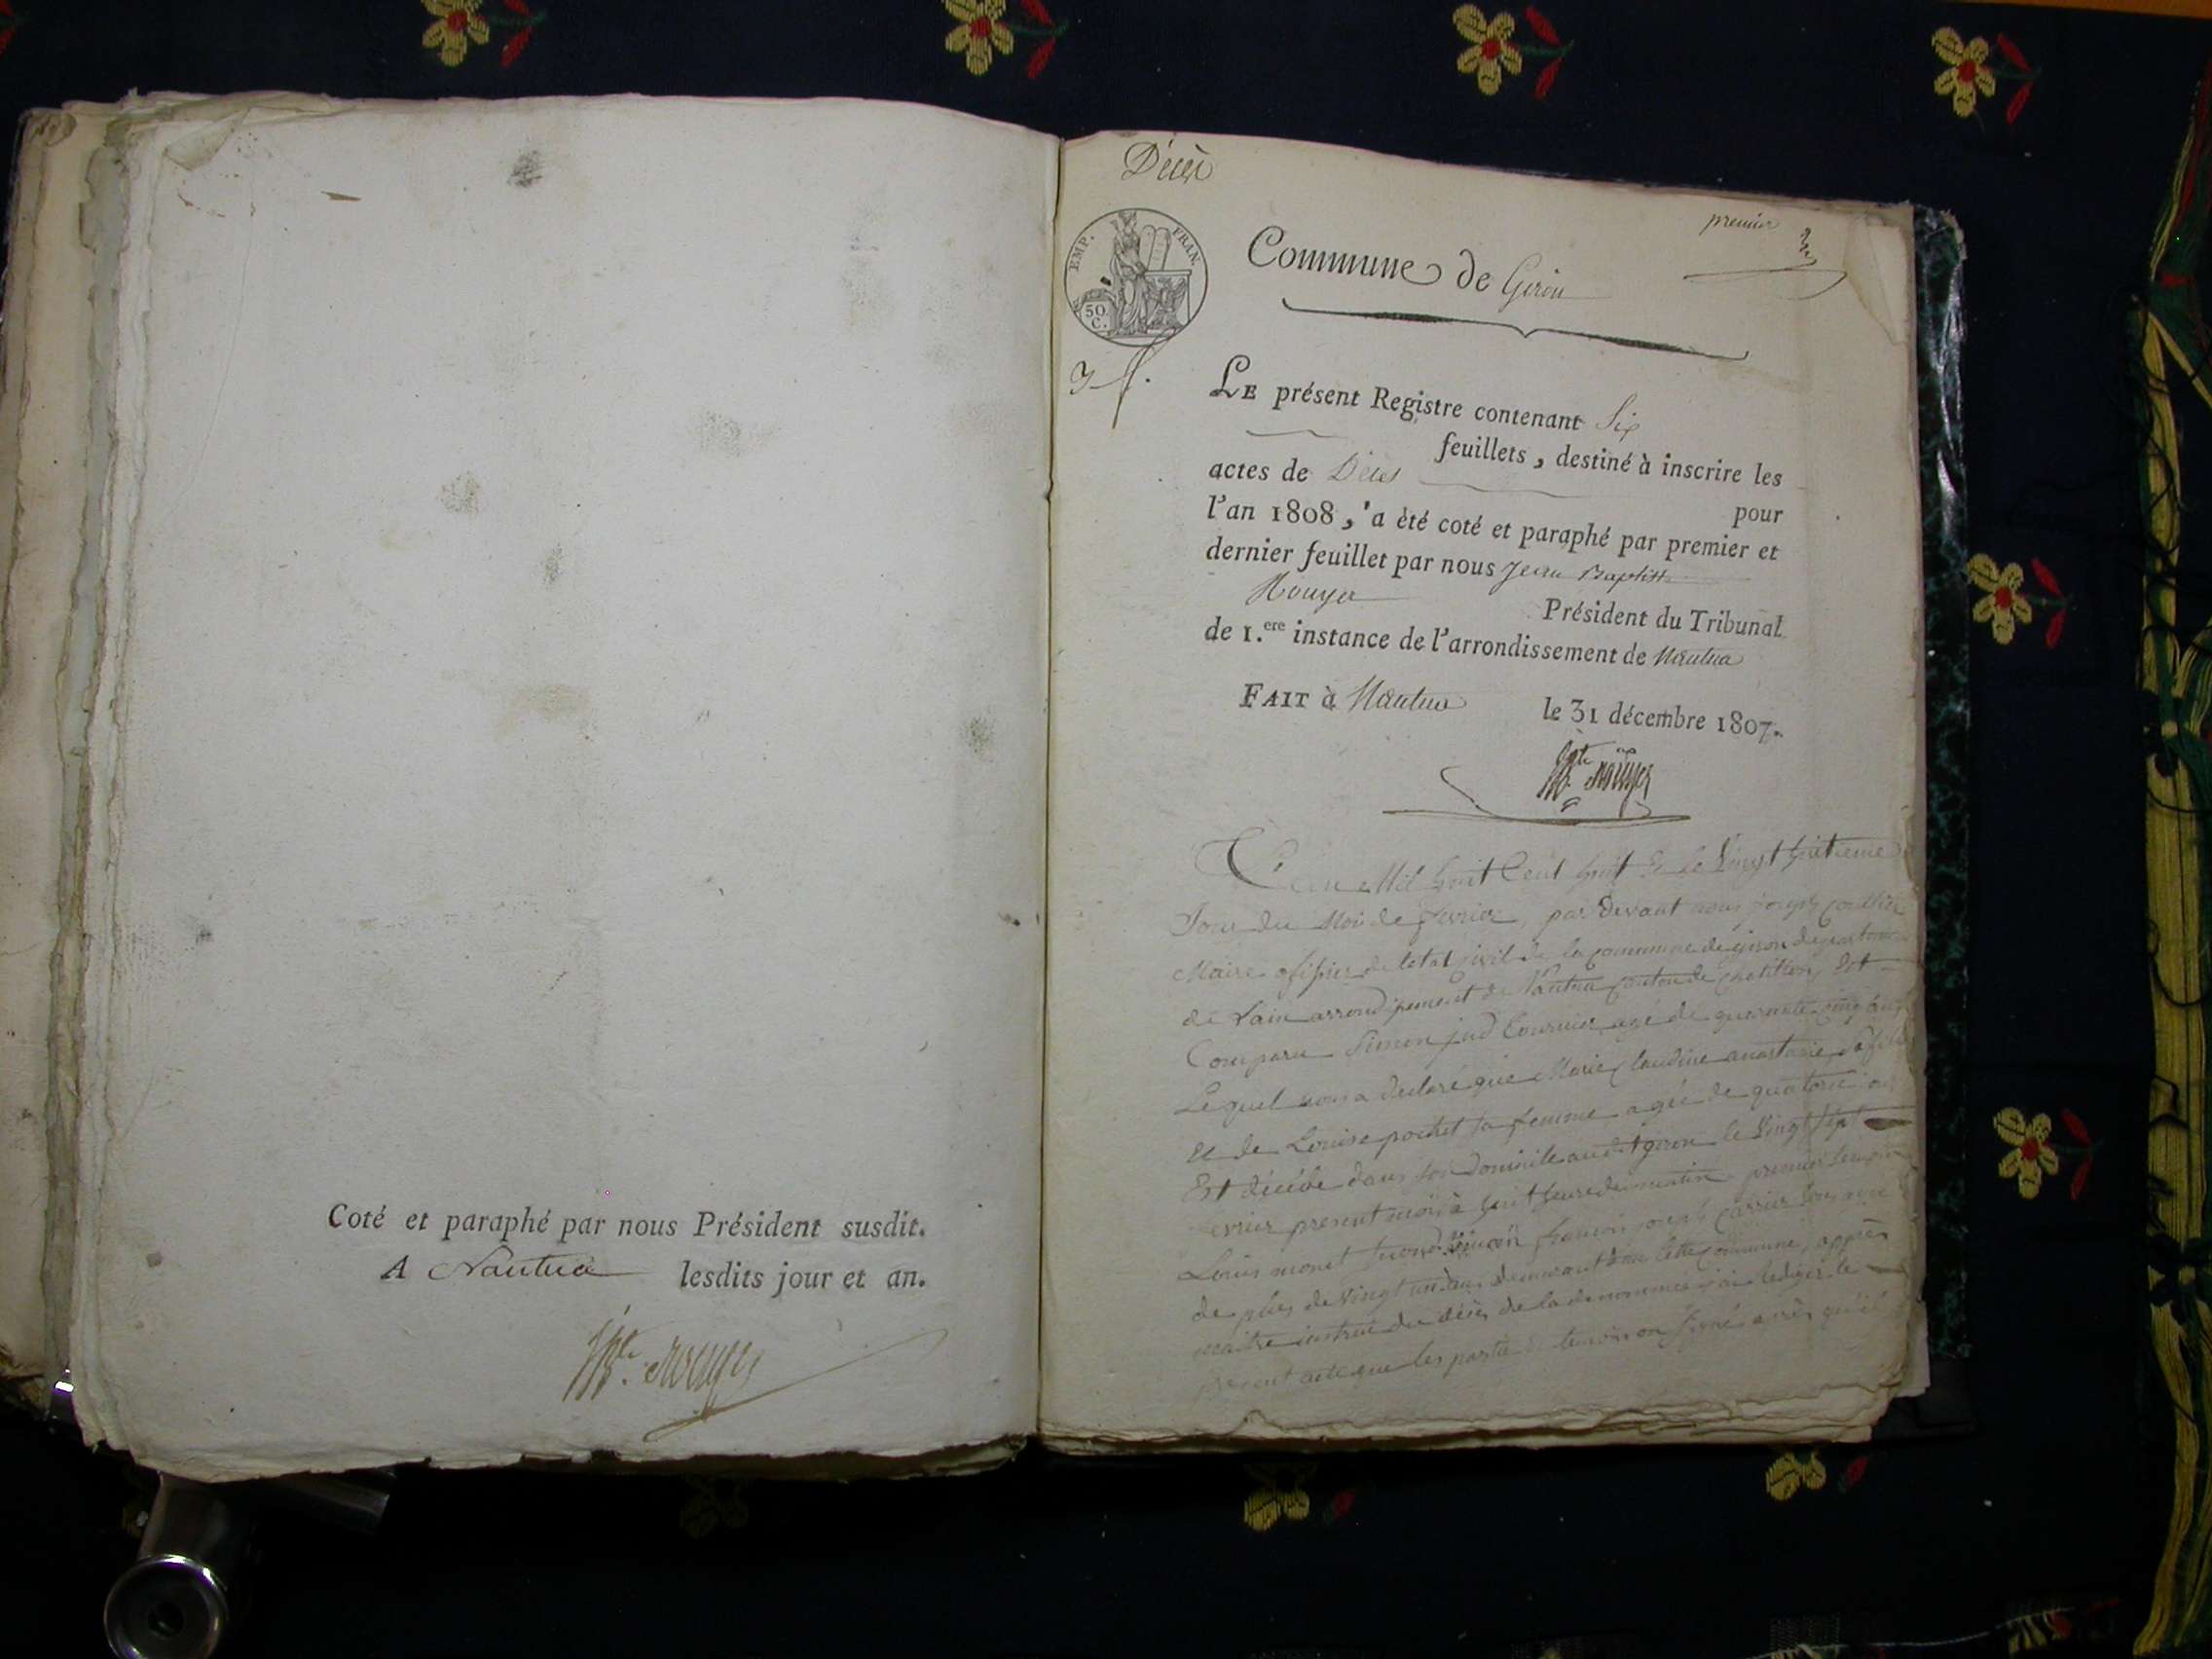 Coté et paraphé par nous Président susdit.
A Nantua lesdits jour et an.
Décès
premier
EMP. FRAN.
50 C.
Commune de Giron
LE présent Registre contenant Six
feuillets, destiné à inscrire les
actes de Décès
pour
l'an 1808, a èté coté et paraphé par premier et
dernier feuillet par nous Jean Baptiste
Rouyer
Président du Tribunal
de 1.ere instance de l'arrondissement de Nantua
FAIT à Nantua le 31 décembre 1807.
L'an Mil huit Cent huit & le Vingt huitieme
Jour du Mois de fevrier, par devant nous joseph
Maire officier de letat civil de la commune de giron departem
de Lain arrondissement de Nantua canton de chatillon, Est
Comparu Simon jud tournier agé de quarante cinq ans
Lequel nous a declaré que Marie Claudine anastasie sa fille
et de Louise pochet sa femme agée de quatorze ans
Est décédé dans son Domicile audit giron le Vingt sept
evrier present mois à huit heure du matin premier temoin
Louis monet second françois joseph carrier tous agé
de plus de vingt un ans demeurant dans cette commune, apprès
maitre instruit du décès de la denommée j'ai redigé le
present acte que les partie et temoin on signé après qu'il